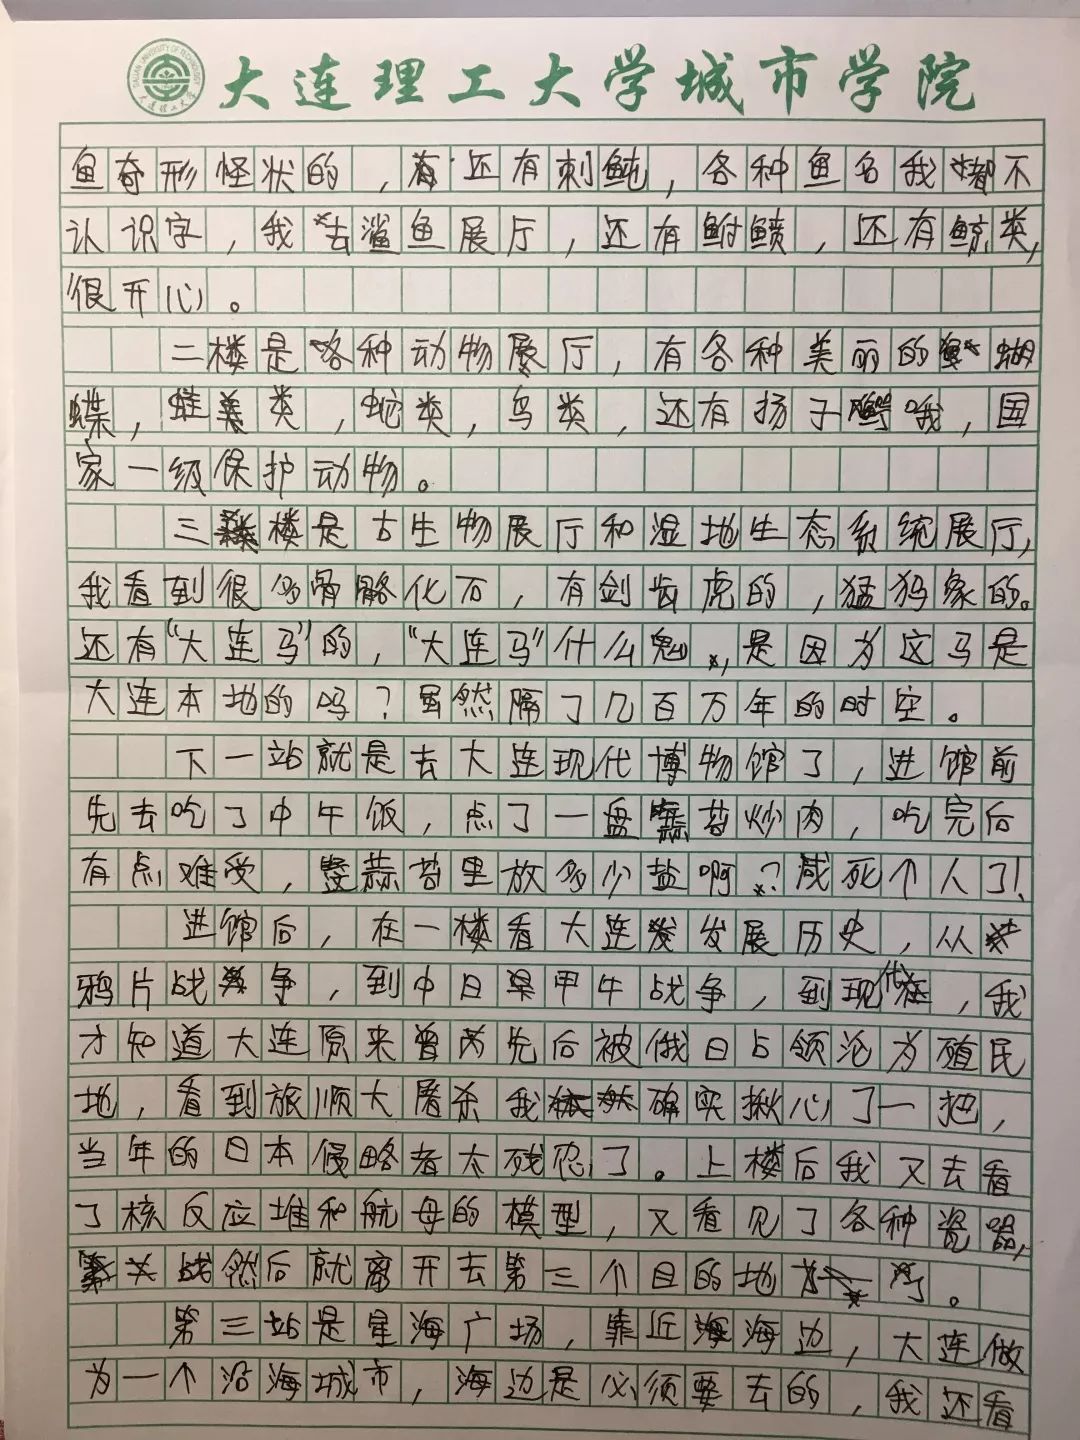 大连理工大学城市学院
鱼奇形怪状的，还有刺鲀，各种鱼名我都不
认识字，我去鲨鱼展厅，还有鲋鱝，还有鲸类，
很开心。
二楼是各种动物展厅，有各种美丽的蝴
蝶，蛙类，蛇类，鸟类，还有扬子鳄哦，国
家一级保护动物。
三楼是古生物展厅和湿地生态系统展厅，
我看到很多骨骼化石，有剑齿虎的，猛犸象的。
还有“大连马”的，“大连马”什么鬼，是因为这马是
大连本地的吗？虽然隔了几百万年的时空。
下一站就是去大连现代博物馆了，进馆前
先去吃了中午饭，点了一盘蒜苔炒肉，吃完后
有点难受，蒜苔里放多少盐啊？咸死个人了！
进馆后，在一楼看大连发展历史，从
鸦片战争，到中日甲午战争，到现代，我
才知道大连原来曾先后被俄日占领沦为殖民
地，看到旅顺大屠杀我确实揪心了一把，
当年的日本侵略者太残忍了。上楼后我又去看
了核反应堆和航母的模型，又看见了各种瓷器，
然后就离开去第三个目的地了。
第三站是星海广场，靠近海边，大连做
为一个沿海城市，海边是必须要去的，我还看